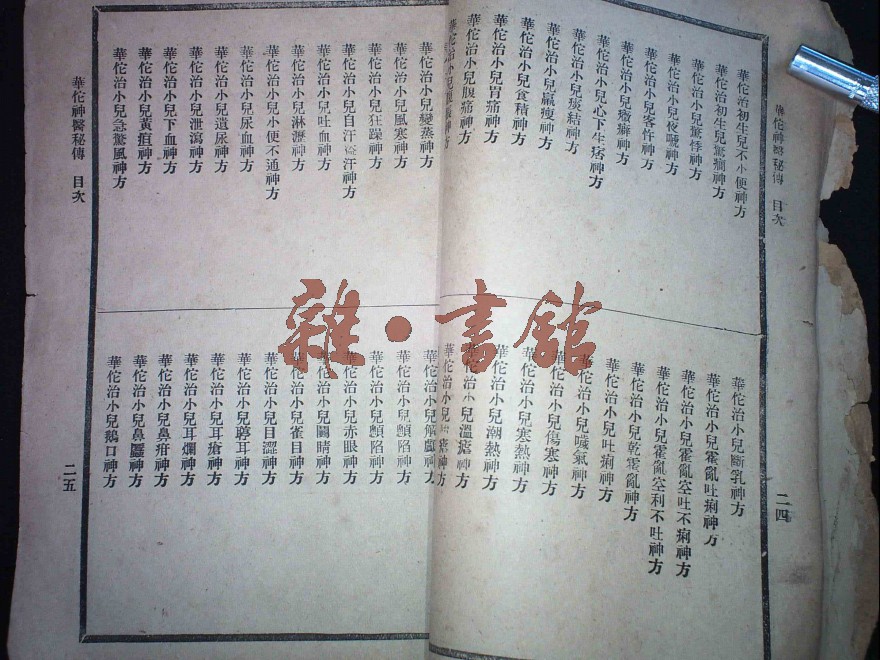 華佗神醫秘傳 目次
二四
華佗治初生兒不小便神方
華佗治初生兒驚癇神方
華佗治小兒驚悸神方
華佗治小兒夜啼神方
華佗治小兒客忤神方
華佗治小兒癥癖神方
華佗治小兒心下生痞神方
華佗治小兒痰結神方
華佗治小兒羸瘦神方
華佗治小兒食積神方
華佗治小兒胃痛神方
華佗治小兒腹痛神方
華佗治小兒腹脹神方
華佗治小兒斷乳神方
華佗治小兒霍亂吐痢神方
華佗治小兒霍亂空吐不痢神方
華佗治小兒霍亂空利不吐神方
華佗治小兒乾霍亂神方
華佗治小兒吐痢神方
華佗治小兒噦氣神方
華佗治小兒傷寒神方
華佗治小兒寒熱神方
華佗治小兒潮熱神方
華佗治小兒溫瘧神方
華佗治小兒瘧神方
華佗治小兒變蒸神方
華佗治小兒風寒神方
華佗治小兒狂躁神方
華佗治小兒自汗盜汗神方
華佗治小兒吐血神方
華佗治小兒淋瀝神方
華佗治小兒小便不通神方
華佗治小兒尿血神方
華佗治小兒遺尿神方
華佗治小兒泄瀉神方
華佗治小兒下血神方
華佗治小兒黃疸神方
華佗治小兒急驚風神方
華佗治小兒解顱神方
華佗治小兒顖陷神方
華佗治小兒顖陷神方
華佗治小兒赤眼神方
華佗治小兒鬬睛神方
華佗治小兒雀目神方
華佗治小兒目澀神方
華佗治小兒聤耳神方
華佗治小兒耳瘡神方
華佗治小兒耳爛神方
華佗治小兒鼻疳神方
華佗治小兒鼻䘌神方
華佗治小兒鵝口神方
華佗神醫秘傳 目次
二五
雜·書館